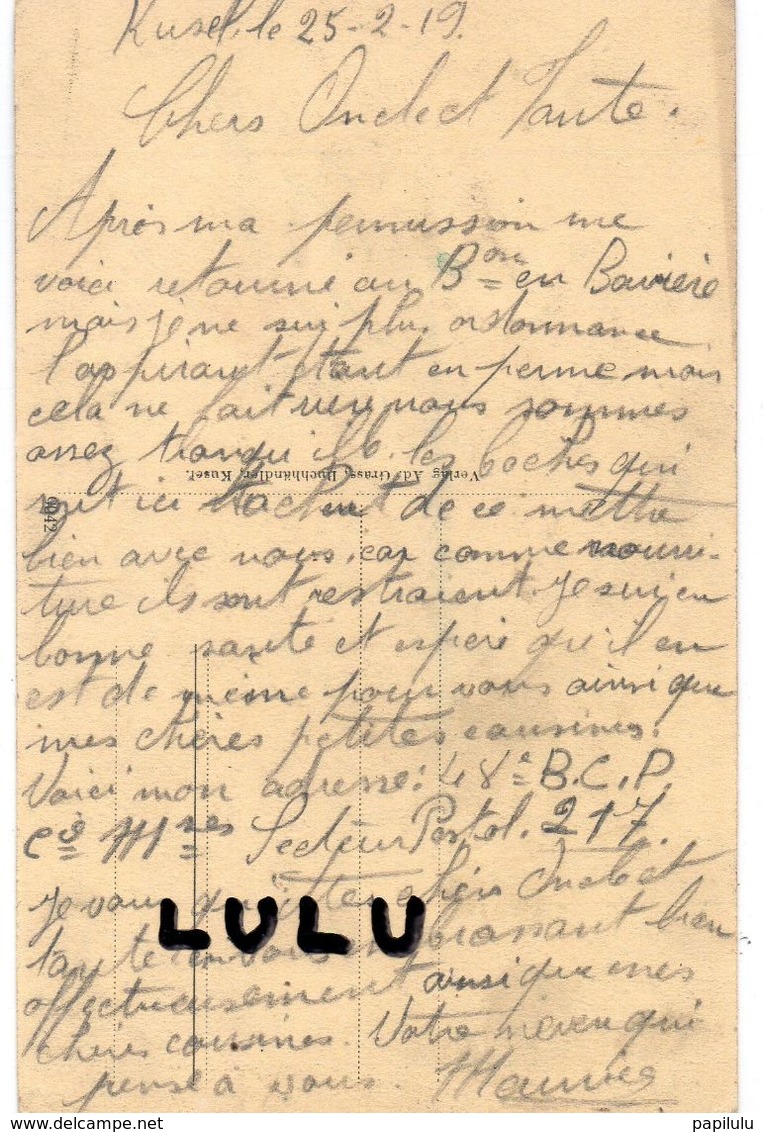 Kusel, le 25-2-19.
Chers Oncle et Tante.
Après ma permission me
voici retourné au Bon en Bavière
mais je ne sui plus ordonnance
l'aspirant étant en perme mais
cela ne fait rien nous sommes
assez tranquille. les boches qui
Verlag Ad. Grass, Buchhändler, Kusel.
sont ici tachent de ce mettre
9042
bien avec nous, car comme nourri-
ture ils sont restraient. Je sui en
bonne santé et espère qu'il en
est de même pour vous ainsi que
mes chères petites cousines.
Voici mon adresse: 48e B.C.P.
Cie Mses Secteur Postal. 217.
Je vous quittes chers Oncle et
LULU
tante en vous embrassant bien
affectueusement ainsi que mes
chères cousines. Votre neveu qui
pense à vous. Maurice
delcampe.net
papilulu